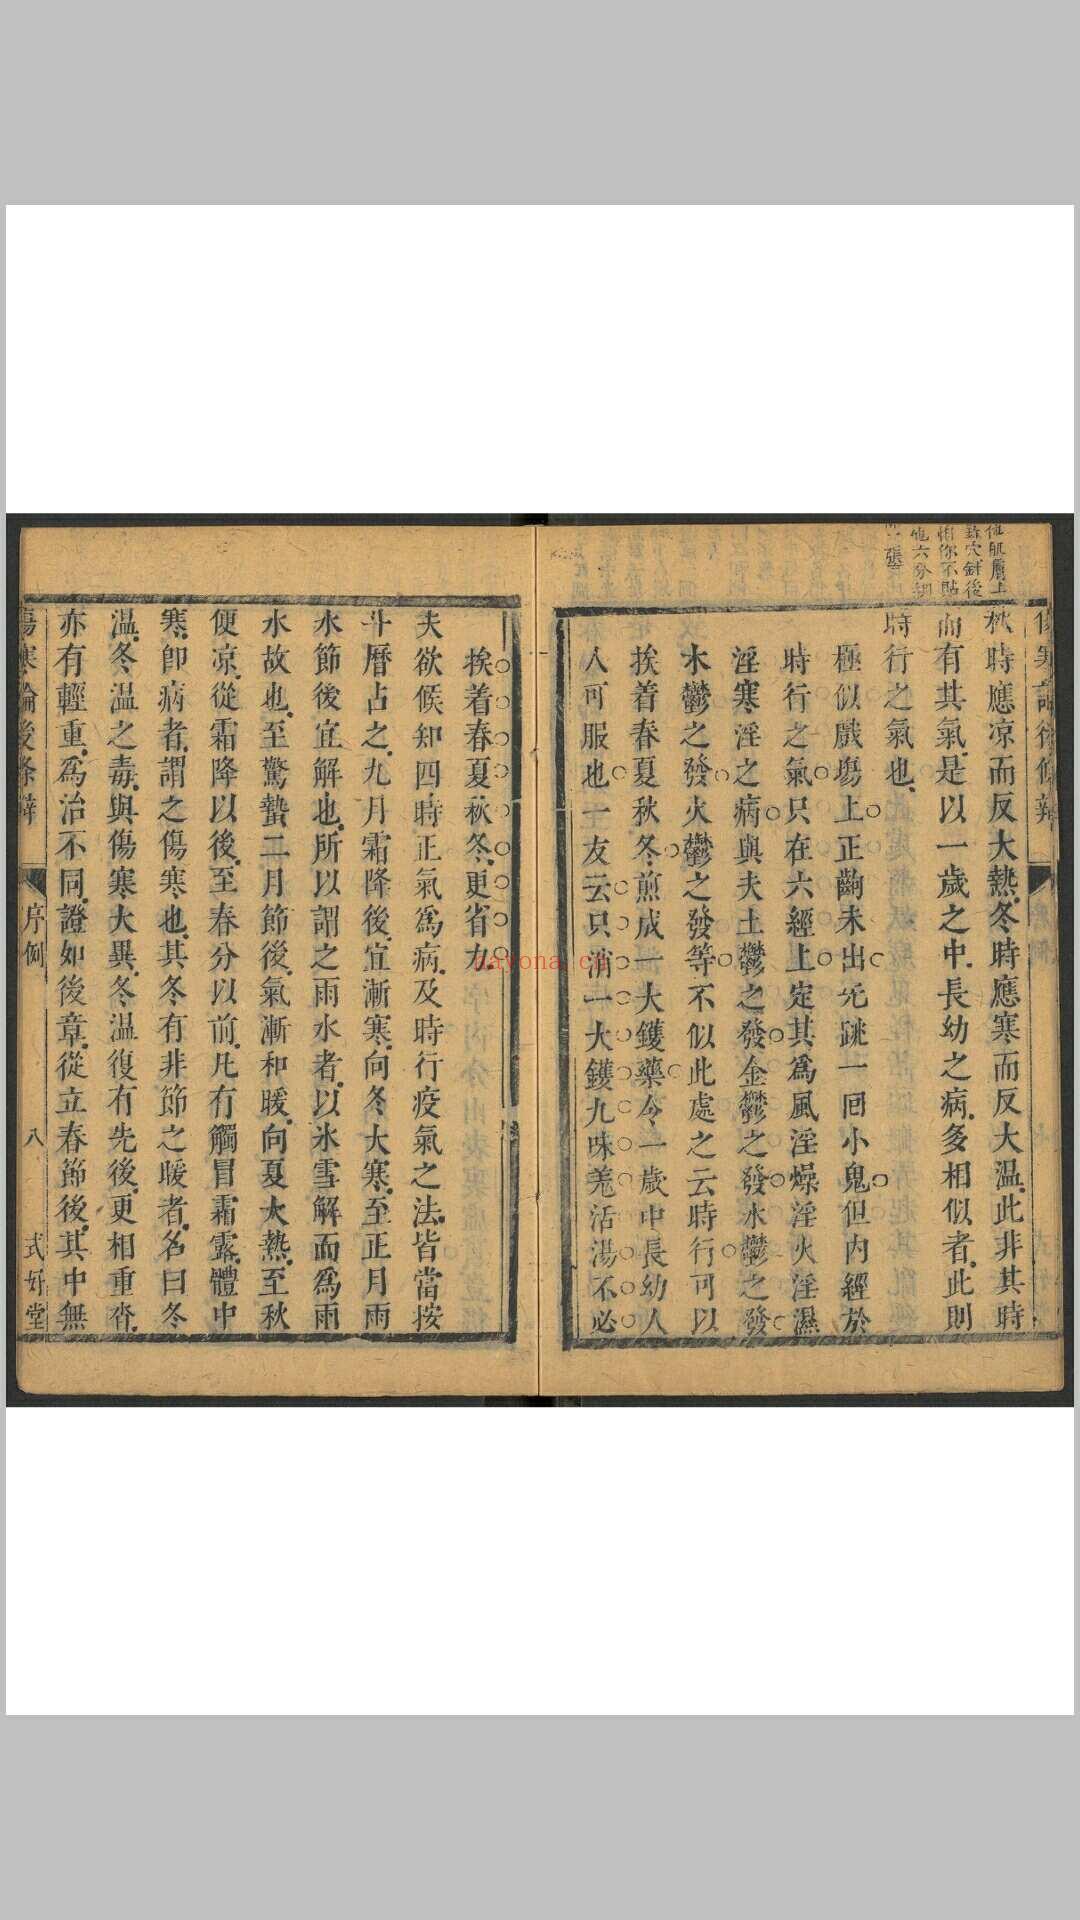 傷寒論後條辨
秋時應凉而反大熱冬時應寒而反大温此非其時
而有其氣是以一歲之中長幼之病多相似者此則
時行之氣也
極似戲塲上正齣未出先跳一囘小鬼但内經於
時行之氣只在六經上定其爲風淫燥淫火淫濕
淫寒淫之病與夫土鬱之發金鬱之發水鬱之發
木鬱之發火鬱之發等不似此處之云時行可以
挨着春夏秋冬煎成一大鑊藥今一歲中長幼人
人可服也一友云只消一大鑊九味羗活湯不必
挨着春夏秋冬更省力
夫欲候知四時正氣爲病及時行疫氣之法皆當按
斗曆占之九月霜降後宜漸寒向冬大寒至正月雨
水節後宜解也所以謂之雨水者以氷雪解而爲雨
水故也至驚蟄二月節後氣漸和暖向夏大熱至秋
便凉從霜降以後至春分以前凡有觸冒霜露體中
寒卽病者謂之傷寒也其冬有非節之暖者名曰冬
温冬温之毒與傷寒大異冬温復有先後更相重沓
亦有輕重爲治不同證如後章從立春節後其中無
傷寒論後條辨 序例 八 式好堂